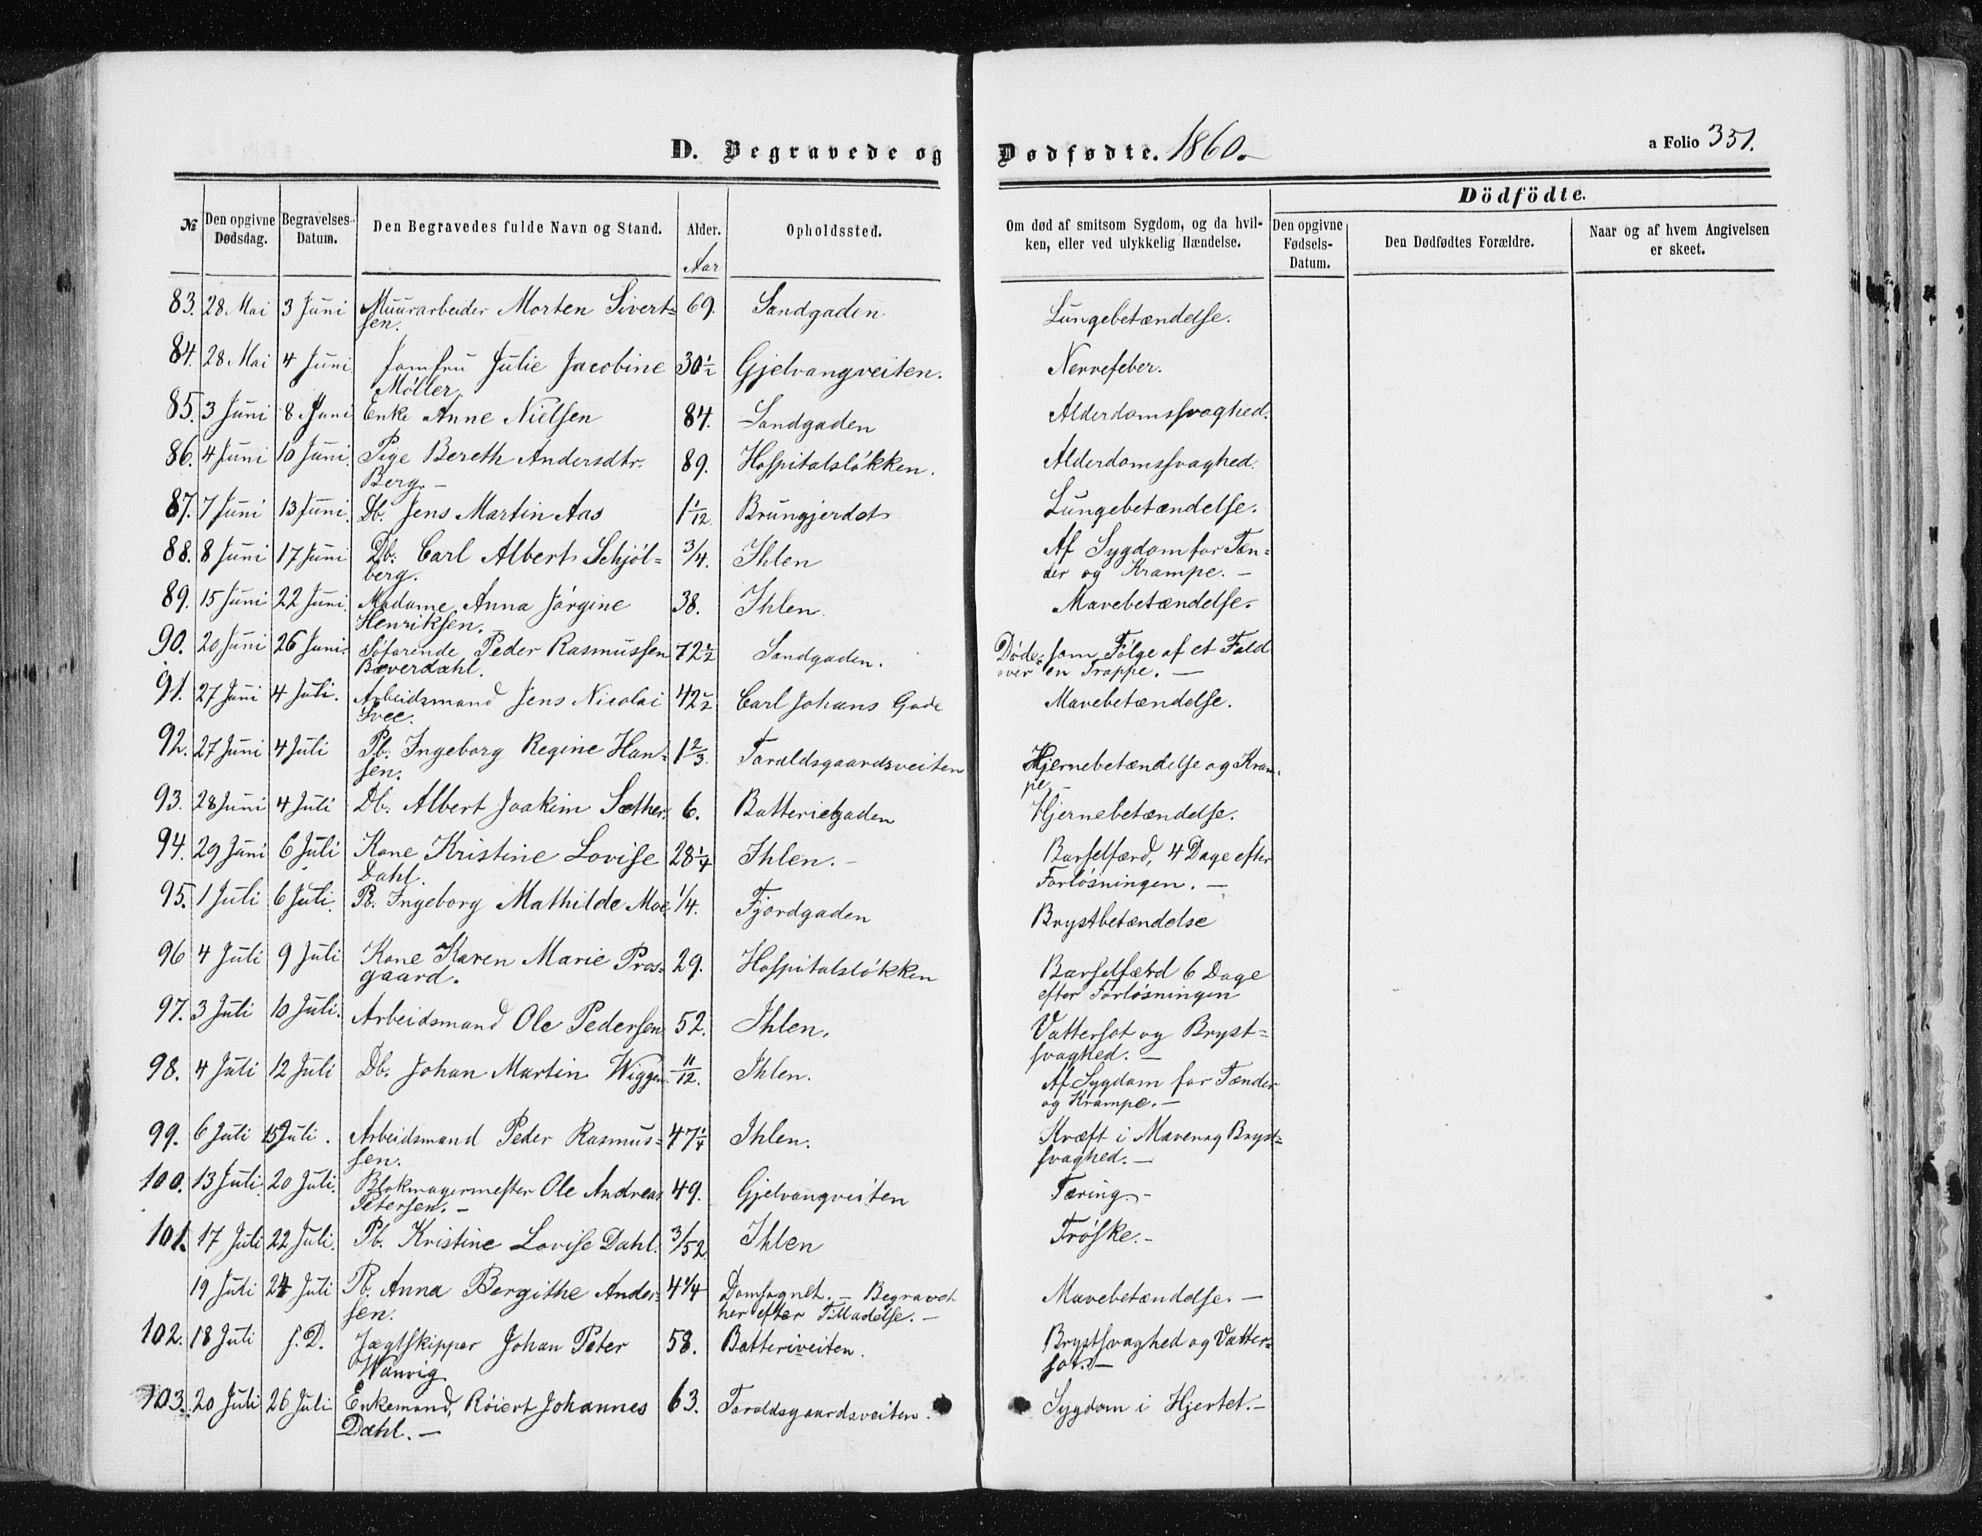 D. Begravede og Dødfødte. 1860.
a Folio 351.
Dödfödte.
№ Den opgivne Dødsdag. Begravelses-Datum. Den Begravedes fulde Navn og Stand. Alder. Opholdssted. Om død af smitsom Sygdom, og da hvilken, eller ved ulykkelig Hændelse. Den opgivne Fødsels-Datum. Den Dødfødtes Forældre. Naar og af hvem Angivelsen er skeet.
Aar
83. 28 Mai 3 Juni Muurarbeider Morten Sivert= 69. Sandgaden Lungebetændelse.
sen.
84. 28 Mai 4 Juni Jomfru Julie Jacobine 30 1/2 Gjelvangveiten. Nervefeber.
Møller
85. 3 Juni 8 Juni Enke Anne Nielsen 84. Sandgaden Alderdomssvaghed.
86. 4 Juni 10 Juni. Pige Bereth Andersdtr. 89. Hospitalsløkken. Alderdomssvaghed.
Berg. —
87. 7 Juni 13 Juni. Db. Jens Martin Aas 1 1/12 Brungjerdet Lungebetændelse.
88. 8 Juni 17 Juni Db. Carl Albert Schjøl= 3/4. Ihlen Af Sygdom for Tæn=
berg. der og Krampe. —
89. 15 Juni 22 Juni. Madame Anna Jørgine 38. Ihlen. Mavebetændelse.
Henriksen.
90. 20 Juni 26 Juni. Søfarende Peder Rasmussen 72 1/2 Sandgaden. Døde som Følge af et Fald
Bæverdahl. over en Trappe. —
91. 27 Juni 4 Juli. Arbeidsmand Jens Nicolai 42 1/2 Carl Johans Gade Mavebetændelse.
Svee.
92. 27 Juni 4 Juli Pb. Ingeborg Regine Han= 1 2/3. Taraldsgaardsveiten Hjernebetændelse og Kram=
sen. pe. —
93. 28 Juni 4 Juli Db. Albert Joakim Sæther. 6. Batterietgaden Hjernebetændelse.
94. 29 Juni 6 Juli Kone Kristine Lovise 28 1/4 Ihlen. — Barselfærd, 4 Dage efter
Dahl. Forløsningen. —
95. 1 Juli 6 Juli. Pb. Ingeborg Mathilde Moe 1/4. Fjordgaden Brystbetændelse
96 4 Juli 9 Juli Kone Karen Marie Pros= 29. Hospitalsløkken Barselfærd 6 Dage
gaard. efter Forløsningen
97. 3 Juli 10 Juli. Arbeidsmand Ole Pedersen 52. Ihlen. Vattersot og Bryst=
svaghed. —
98. 4 Juli 12 Juli Db. Johan Martin Wiggen 11/12. Ihlen. Af Sygdom for Tænder
og Krampe. —
99. 6 Juli 15 Juli. Arbeidsmand Peder Rasmus= 47 1/4 Ihlen. Kræft i Maven og Bryst=
sen. svaghed. —
100. 13 Juli. 20 Juli. Blokmagermester Ole Andreas 49. Gjelvangveiten Tæring. —
Petersen. —
101. 17 Juli 22 Juli. Pb. Kristine Lovise Dahl. 3/52 Ihlen Trøske. —
19 Juli 24 Juli Pb. Anna Bergithe Ander= 4 1/4 Domsognet. — Begravet Mavebetændelse. —
sen. her efter Tilladelse. —
102. 18 Juli s. D. Jægtskipper Johan Peter 58. Batteriveiten. Brystsvaghed og Vatter=
Wanvig sot. —
103. 20 Juli 26 Juli Enkemand, Røiert Johannes 63. Taraldsgaardsveiten. Sygdom i Hjertet. —
Dahl. —